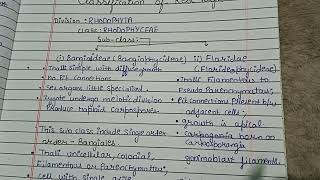 Classification of Red Algae
Division: RHODOPHYTA
Class: RHODOPHYCEAE
Sub-class:
(i) Bangioideae (Bangiophycideae) ii) Florideae
(Florideophycideae)
• Thalli simple with diffuse growth
• Thalli filamentous to
• No Pit connections
Pseudo Parenchymatous;
• Sex organs little specialized
• Pit connections Present b/w
• Zygote undergo meiotic division
adjacent cells;
Produce haploid carpospores
• growth is apical
• This sub class include single order
• carpogonia borne on
order - Bangiales.
• Thalli unicellular, colonial,
gonimoblast filaments.
filamentous or Parenchymatous,
cell with single